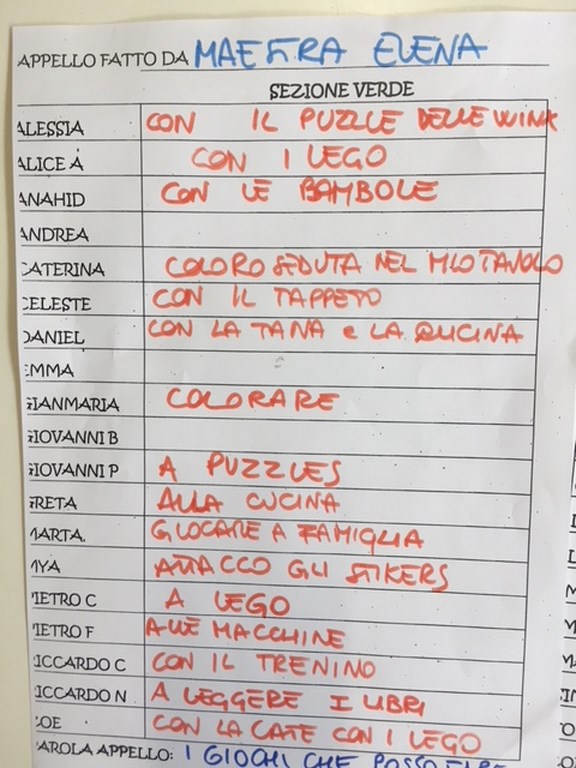 APPELLO FATTO DA MAESTRA ELENA
SEZIONE VERDE
ALESSIA CON IL PUZZLE DELLE WINX
ALICE A CON I LEGO
ANAHID CON LE BAMBOLE
ANDREA
CATERINA COLORO SEDUTA NEL MIO TAVOLO
CELESTE CON IL TAPPETO
DANIEL CON LA TANA e LA QUCINA
EMMA
GIANMARIA COLORARE
GIOVANNI B
GIOVANNI P A PUZZLES
GRETA ALLA CUCINA
MARTA GIOCARE A FAMIGLIA
MYA ATTACCO GLI STIKERS
PIETRO C A LEGO
PIETRO F ALLE MACCHINE
RICCARDO C CON IL TRENINO
RICCARDO N A LEGGERE I LIBRI
ZOE CON LA CATE CON I LEGO
PAROLA APPELLO: I GIOCHI CHE POSSO FARE